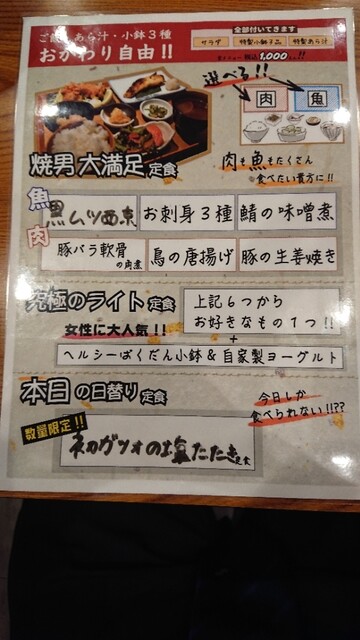 ご飯・あら汁・小鉢3種
おかわり自由!!
全部付いてきます
サラダ 特製小鉢3品 特製あら汁
1,000
選べる!!
肉 魚
焼男 大満足 定食
肉も魚もたくさん
食べたい貴方に!!
魚
黒ムツ西京 お刺身3種 鯖の味噌煮
肉
豚バラ軟骨の角煮 鳥の唐揚げ 豚の生姜焼き
究極のライト 定食
女性に大人気!!
上記6つから
お好きなもの1つ!!
+
ヘルシーばくだん小鉢&自家製ヨーグルト
本日の日替り定食
今日しか
食べられない!!??
数量限定!!
初ガツオの塩たたき定食